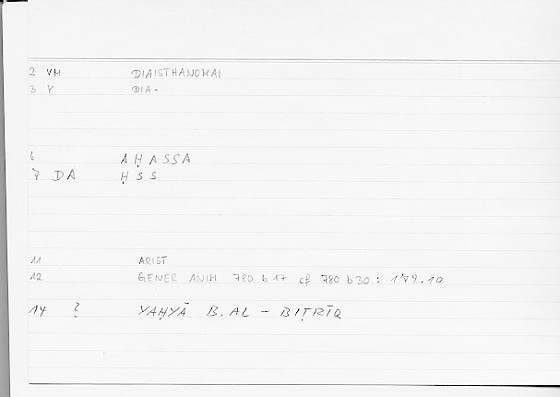 2 VM DIAISTHANOMAI
3 Y DIA-
6 AḤASSA
7 DA ḤSS
11 ARIST
12 GENER ANIM 780 b 17 cf 780 b 30 : 179.10
14 ? YAḤYĀ B. AL - BIṬRĪQ